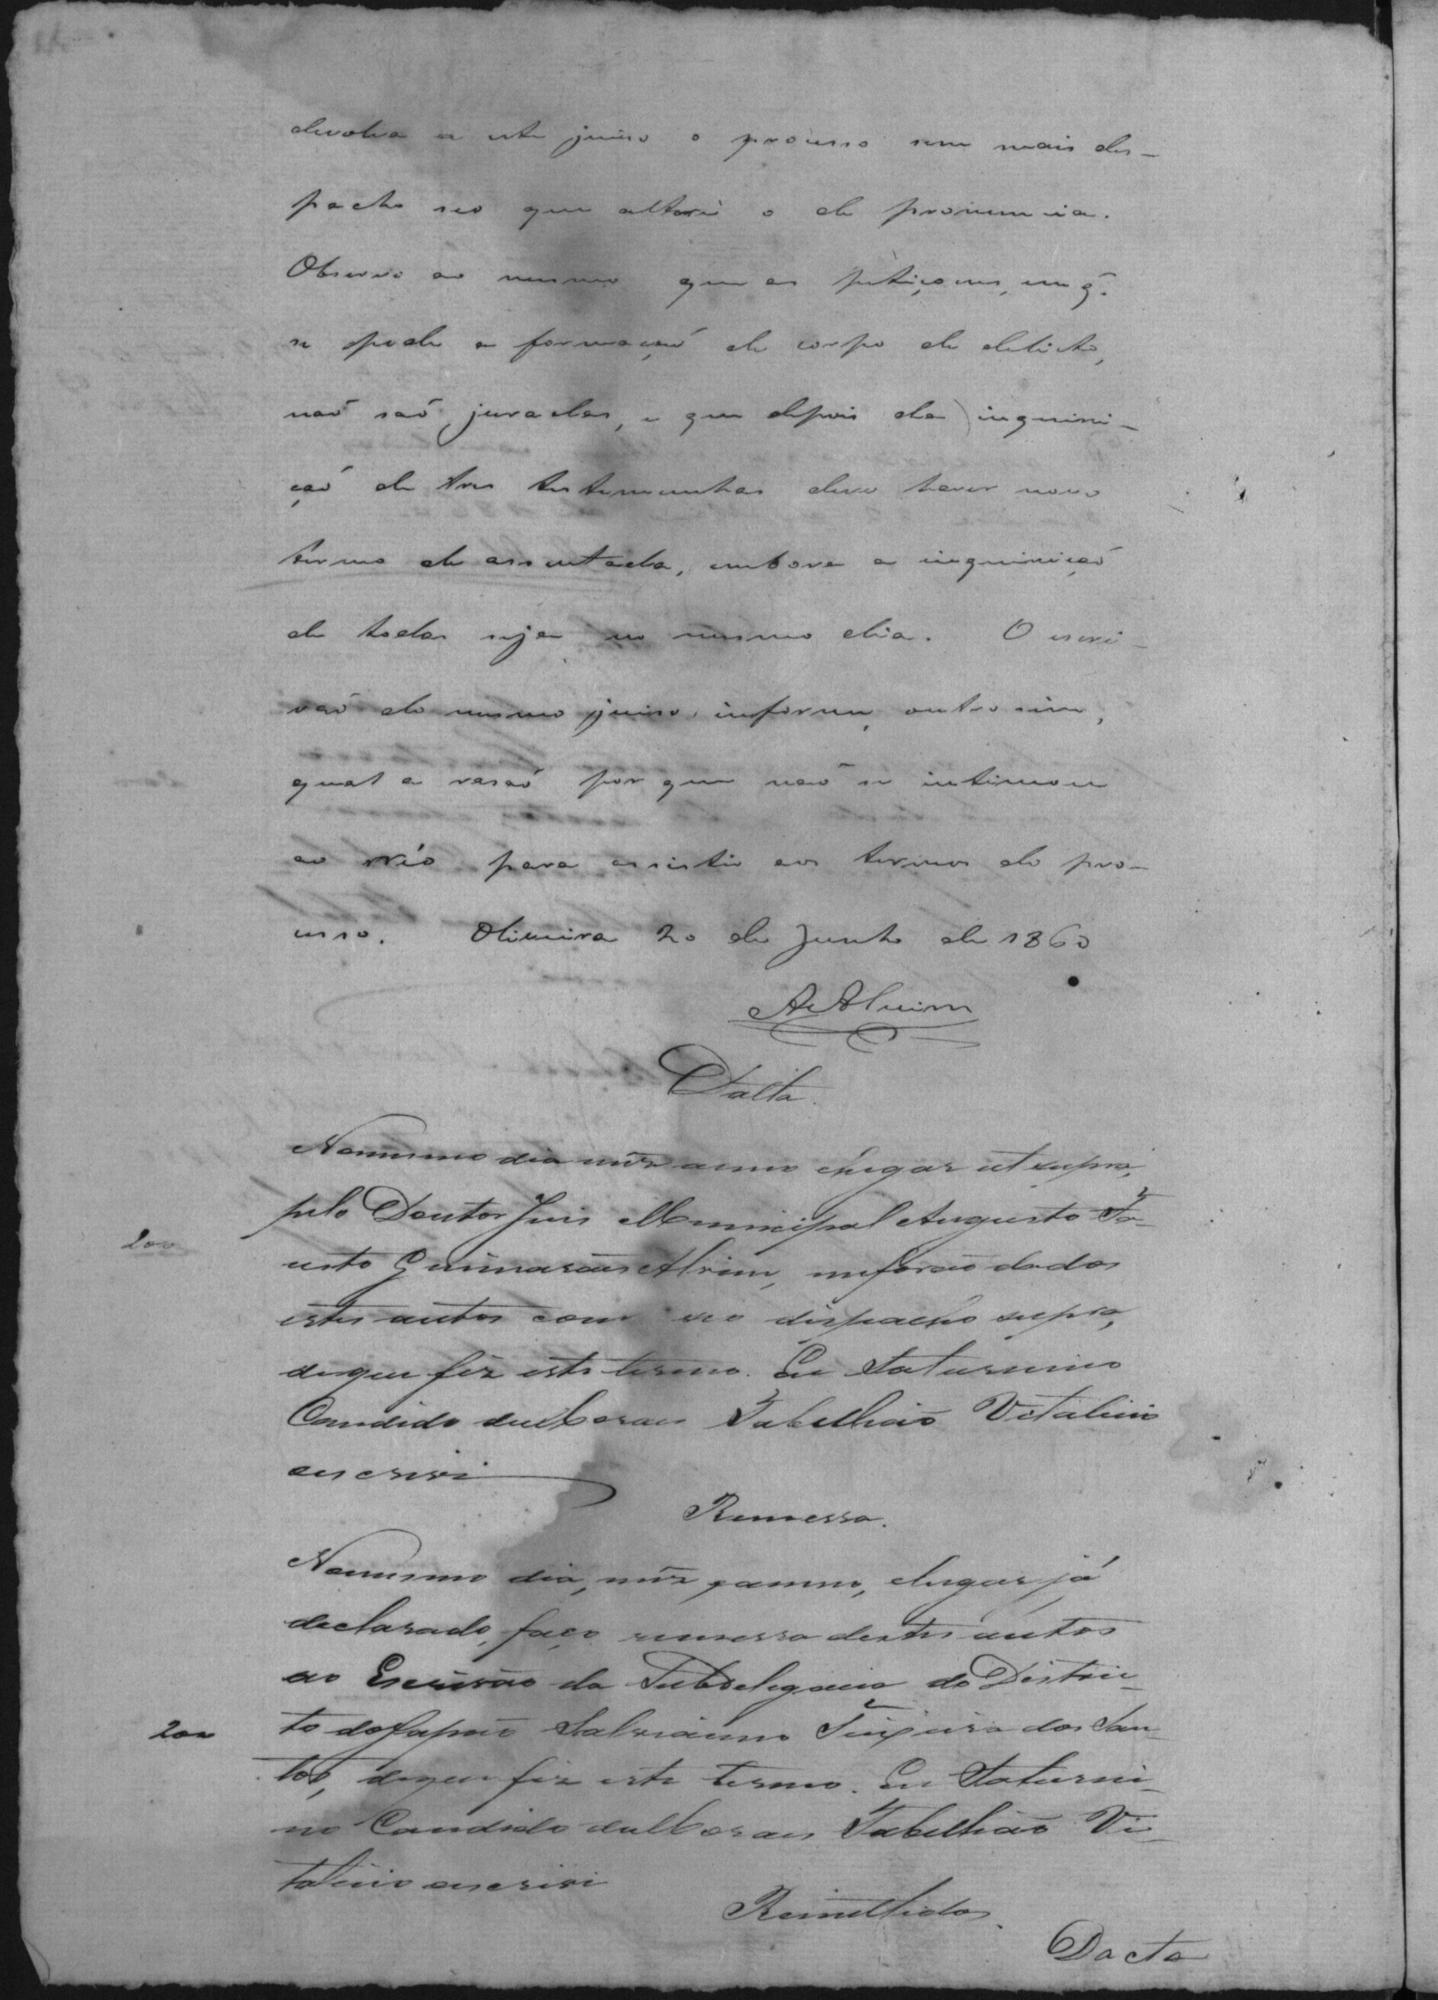 devolva a este juiso o processo sem mais des-
pacho seo que altere o de pronuncia.
Observo ao mesmo que as petiçoens, em q.
se pede a formaçaõ de corpo de delicto,
naõ saõ juradas, e que depois da inquiri-
çaõ de tres testemunhas deve haver novo
termo de assentada, embora a inquiriçaõ
de todas seja no mesmo dia. O escri-
vaõ do mesmo juiso informe, outro sim,
qual a rasaõ por que naõ se intimou
ao réo para assistir aos termos do pro-
cesso. Oliveira 20 de Junho de 1860
Alvim
Dacta.
Nomesmo dia mêz anno elugar ut supra,
200
pelo Doutor Juis Municipal Augusto Fa-
usto Guimarães Alvim, meforão dados
estes autos com seo dispacho supra,
deque fiz este termo. Eu Saturnino
Candido deMoraes Tabelhião Vitalicio
escrivi
Remessa.
Nomesmo dia, mêz eanno, elugar já
declarado, faço remessa destes autos
ao Escrivão da Subdelegacia do Distric-
200
to do Salvianno Teixeira dos San-
tos, deque fiz este termo. Eu Saturni-
no Candido deMoraes Tabelhião Vi-
talicio escrivi
Remettidos.
Dacta